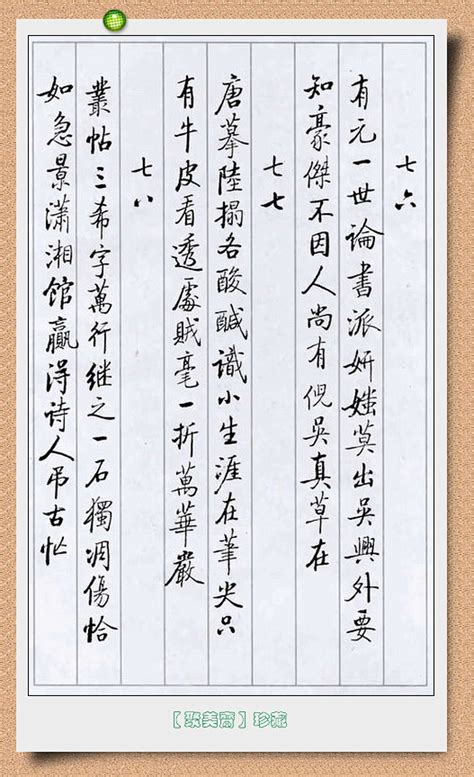 七六
有元一世論書派妍媸莫出吳興外要
知豪傑不因人尚有倪吳真草在
七七
唐摹陸搨各酸鹹識小生涯在筆尖只
有牛皮看透處賊毫一折萬華嚴
七八
叢帖三希字萬行继之一石獨凋傷恰
如急景潇湘馆贏得诗人吊古忙
【聚美齋】珍藏